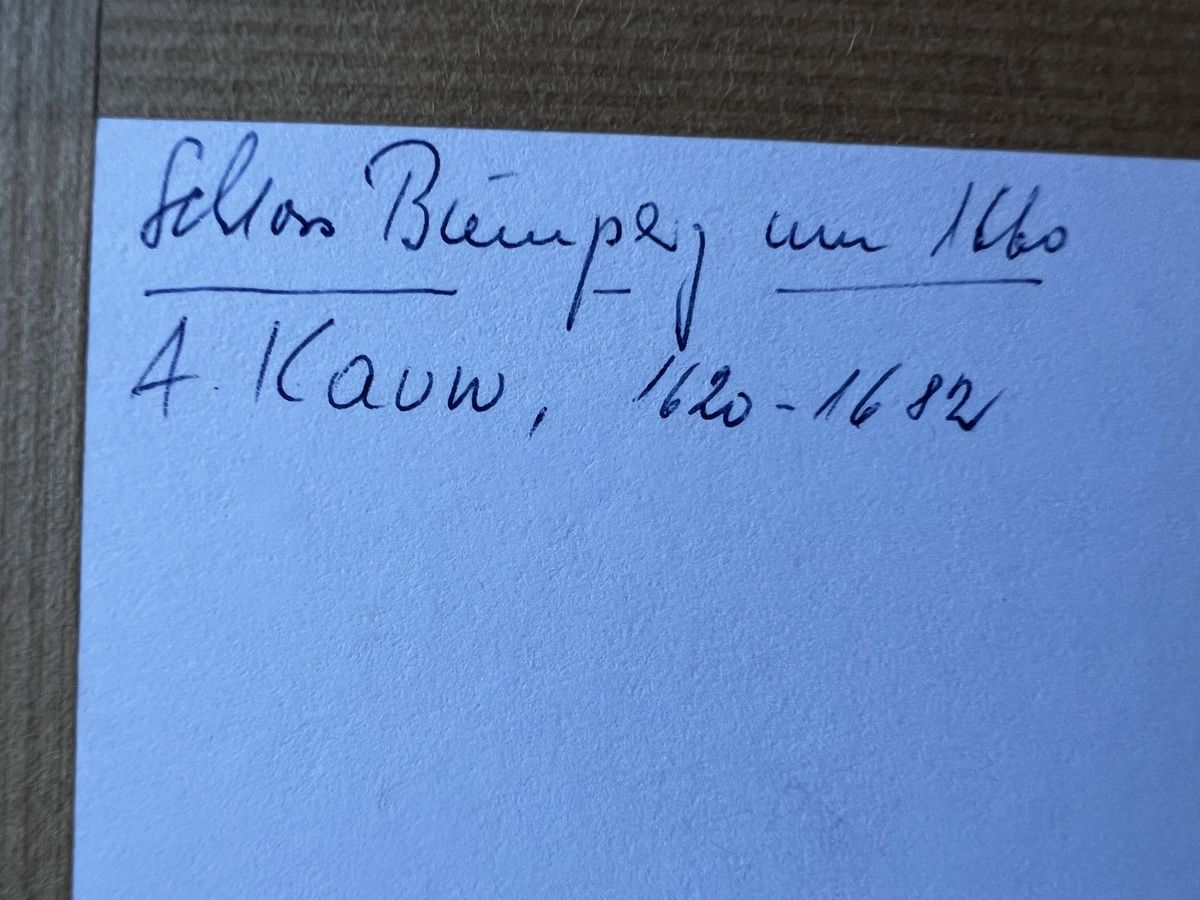 Schloss Bümpliz um 1660
A. Kauw, 1620-1682